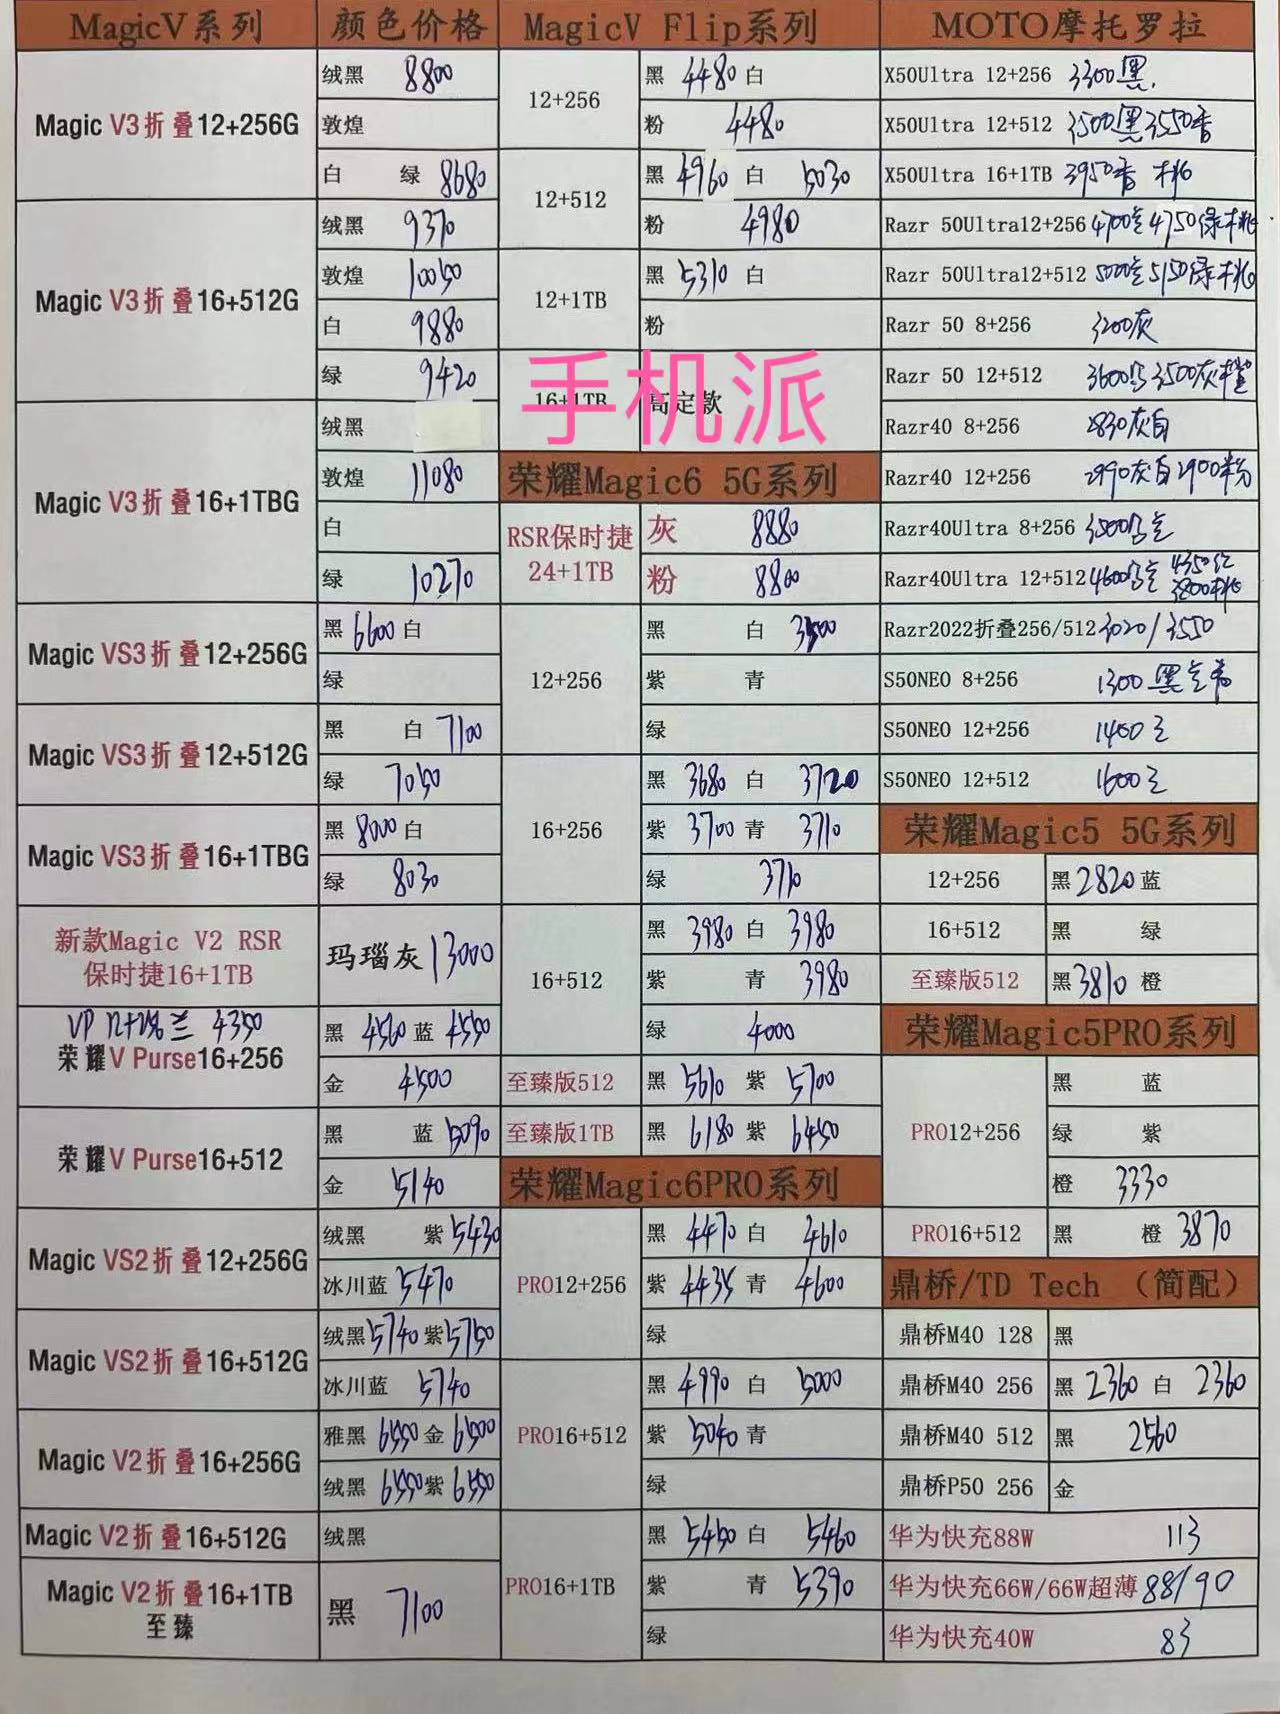 MagicV系列 颜色价格
Magic V3折叠12+256G
绒黑 8800
敦煌
白 绿 8680
Magic V3折叠16+512G
绒黑 9370
敦煌 10050
白 9880
绿 9420
Magic V3折叠16+1TBG
绒黑
敦煌 11080
白
绿 10270
Magic VS3折叠12+256G
黑 6600 白
绿
Magic VS3折叠12+512G
黑 白 7100
绿 7050
Magic VS3折叠16+1TBG
黑 8000 白
绿 8030
新款Magic V2 RSR
保时捷16+1TB
玛瑙灰 13000
VP 12+256 兰 4350
荣耀V Purse16+256
黑 4560 蓝 4550
金 4500
荣耀V Purse16+512
黑 蓝 5090
金 5140
Magic VS2折叠12+256G
绒黑 紫 5430
冰川蓝 5470
Magic VS2折叠16+512G
绒黑 5740 紫 5750
冰川蓝 5740
Magic V2折叠16+256G
雅黑 6550 金 6500
绒黑 6550 紫 6550
Magic V2折叠16+512G
绒黑
Magic V2折叠16+1TB
至臻
黑 7100
MagicV Flip系列
12+256
黑 4480 白
粉 4480
12+512
黑 4960 白 5030
粉 4980
12+1TB
黑 5310 白
粉
手机派
16+1TB 高定款
荣耀Magic6 5G系列
RSR保时捷
24+1TB
灰 8880
粉 8800
12+256
黑 白 3500
紫 青
绿
16+256
黑 3680 白 3720
紫 3700 青 3710
绿 3710
16+512
黑 3980 白 3980
紫 青 3980
绿 4000
至臻版512 黑 5610 紫 5700
至臻版1TB 黑 6180 紫 6450
荣耀Magic6PRO系列
PRO12+256
黑 4470 白 4610
紫 4435 青 4600
绿
PRO16+512
黑 4990 白 5000
紫 5040 青
绿
PRO16+1TB
黑 5450 白 5460
紫 青 5390
绿
MOTO摩托罗拉
X50Ultra 12+256 3300黑
X50Ultra 12+512 3500黑3550杏
X50Ultra 16+1TB 3950杏 桃
Razr 50Ultra12+256 4700兰 4750绿桃
Razr 50Ultra12+512 5000兰 5150绿桃
Razr 50 8+256 3200灰
Razr 50 12+512 3600 3500灰橙
Razr40 8+256 2830灰白
Razr40 12+256 2990灰白2900粉
Razr40Ultra 8+256 3500
Razr40Ultra 12+512 4600 4350红 3800桃
Razr2022折叠256/512 3020/3550
S50NEO 8+256 1300 黑兰
S50NEO 12+256 1400兰
S50NEO 12+512 1600兰
荣耀Magic5 5G系列
12+256 黑 2820 蓝
16+512 黑 绿
至臻版512 黑 3810 橙
荣耀Magic5PRO系列
PRO12+256
黑 蓝
绿 紫
橙 3330
PRO16+512 黑 橙 3870
鼎桥/TD Tech（简配）
鼎桥M40 128 黑
鼎桥M40 256 黑 2360 白 2360
鼎桥M40 512 黑 2560
鼎桥P50 256 金
华为快充88W 113
华为快充66W/66W超薄 88/90
华为快充40W 83